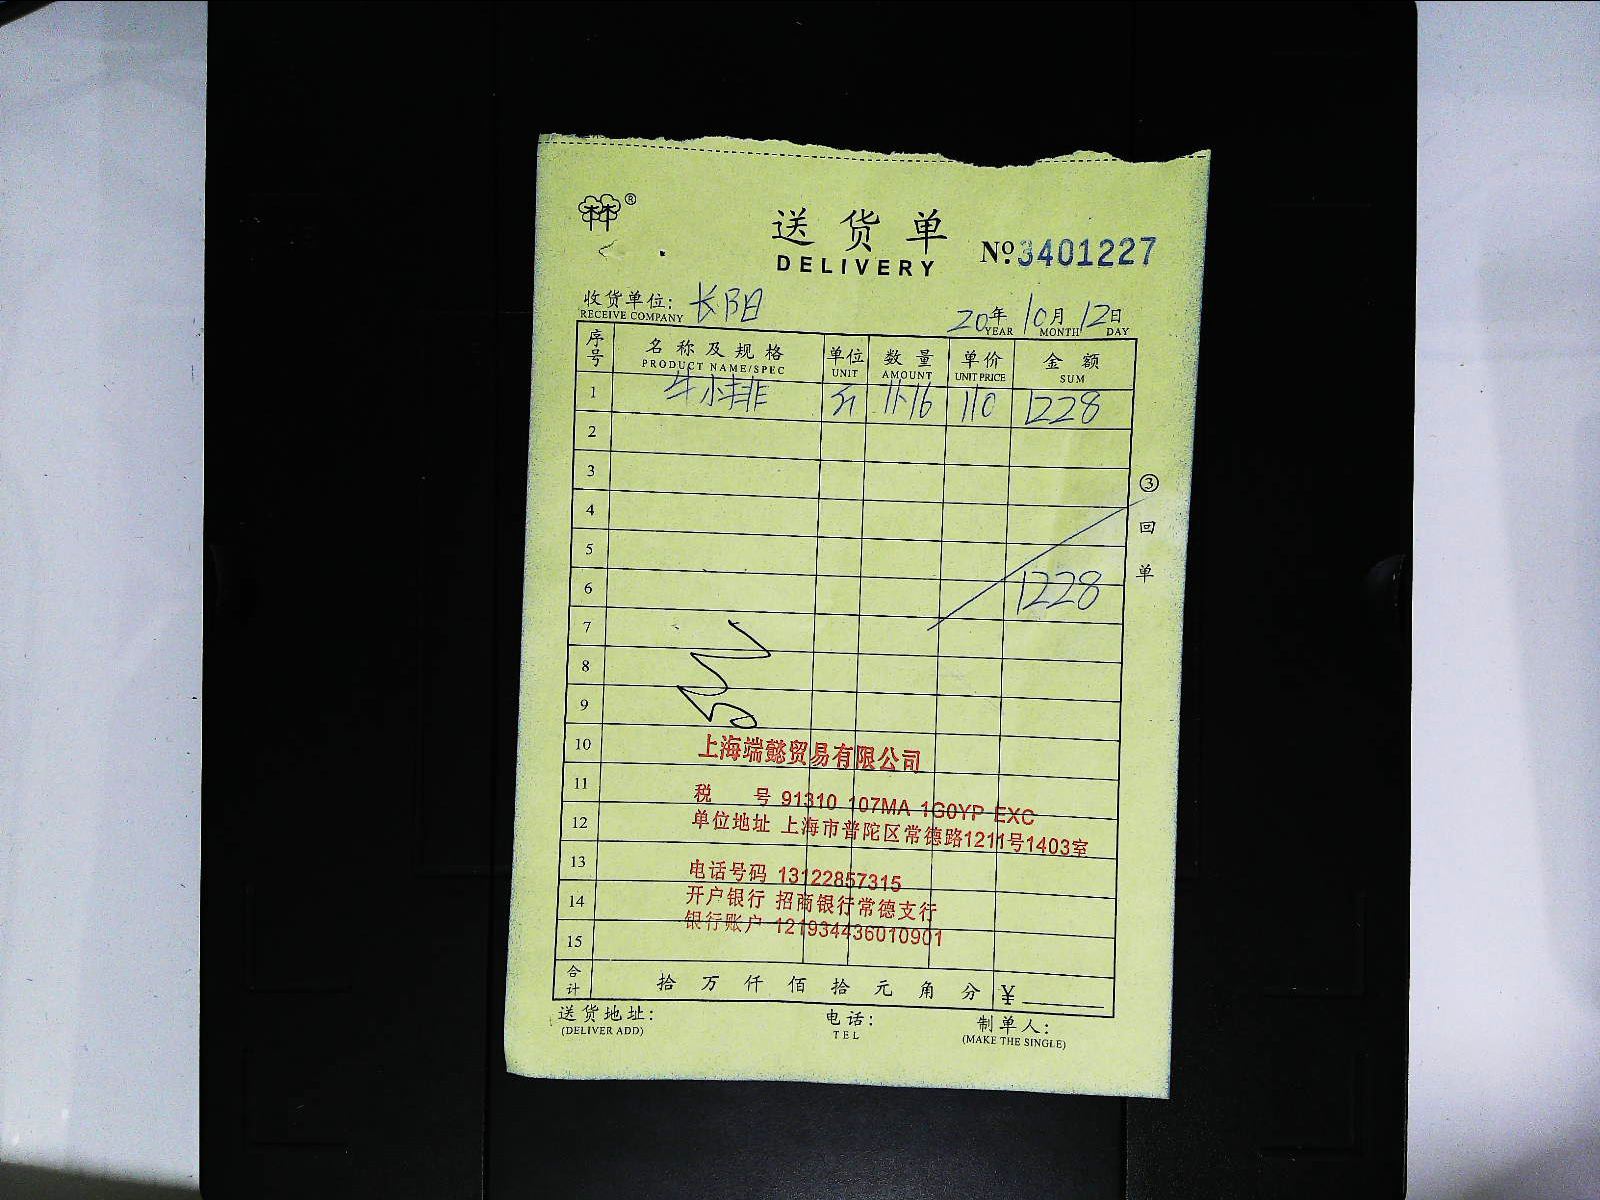 林®
送货单
DELIVERY
№ 3401227
收货单位: 长阳
RECEIVE COMPANY
20年 10月 12日
YEAR MONTH DAY
序号 名称及规格 单位 数量 单价 金额
PRODUCT NAME/SPEC UNIT AMOUNT UNIT PRICE SUM
1 牛小排 11.16 110 1228
2
3
4
5
6 1228
7
8
9
10
11
12
13
14
15
③回单
上海端懿贸易有限公司
税 号 91310 107MA 1G0YP EXC
单位地址 上海市普陀区常德路1211号1403室
电话号码 13122857315
开户银行 招商银行常德支行
银行账户 121934436010901
合计 拾 万 仟 佰 拾 元 角 分 ¥
送货地址: 电话: 制单人:
(DELIVER ADD) TEL (MAKE THE SINGLE)